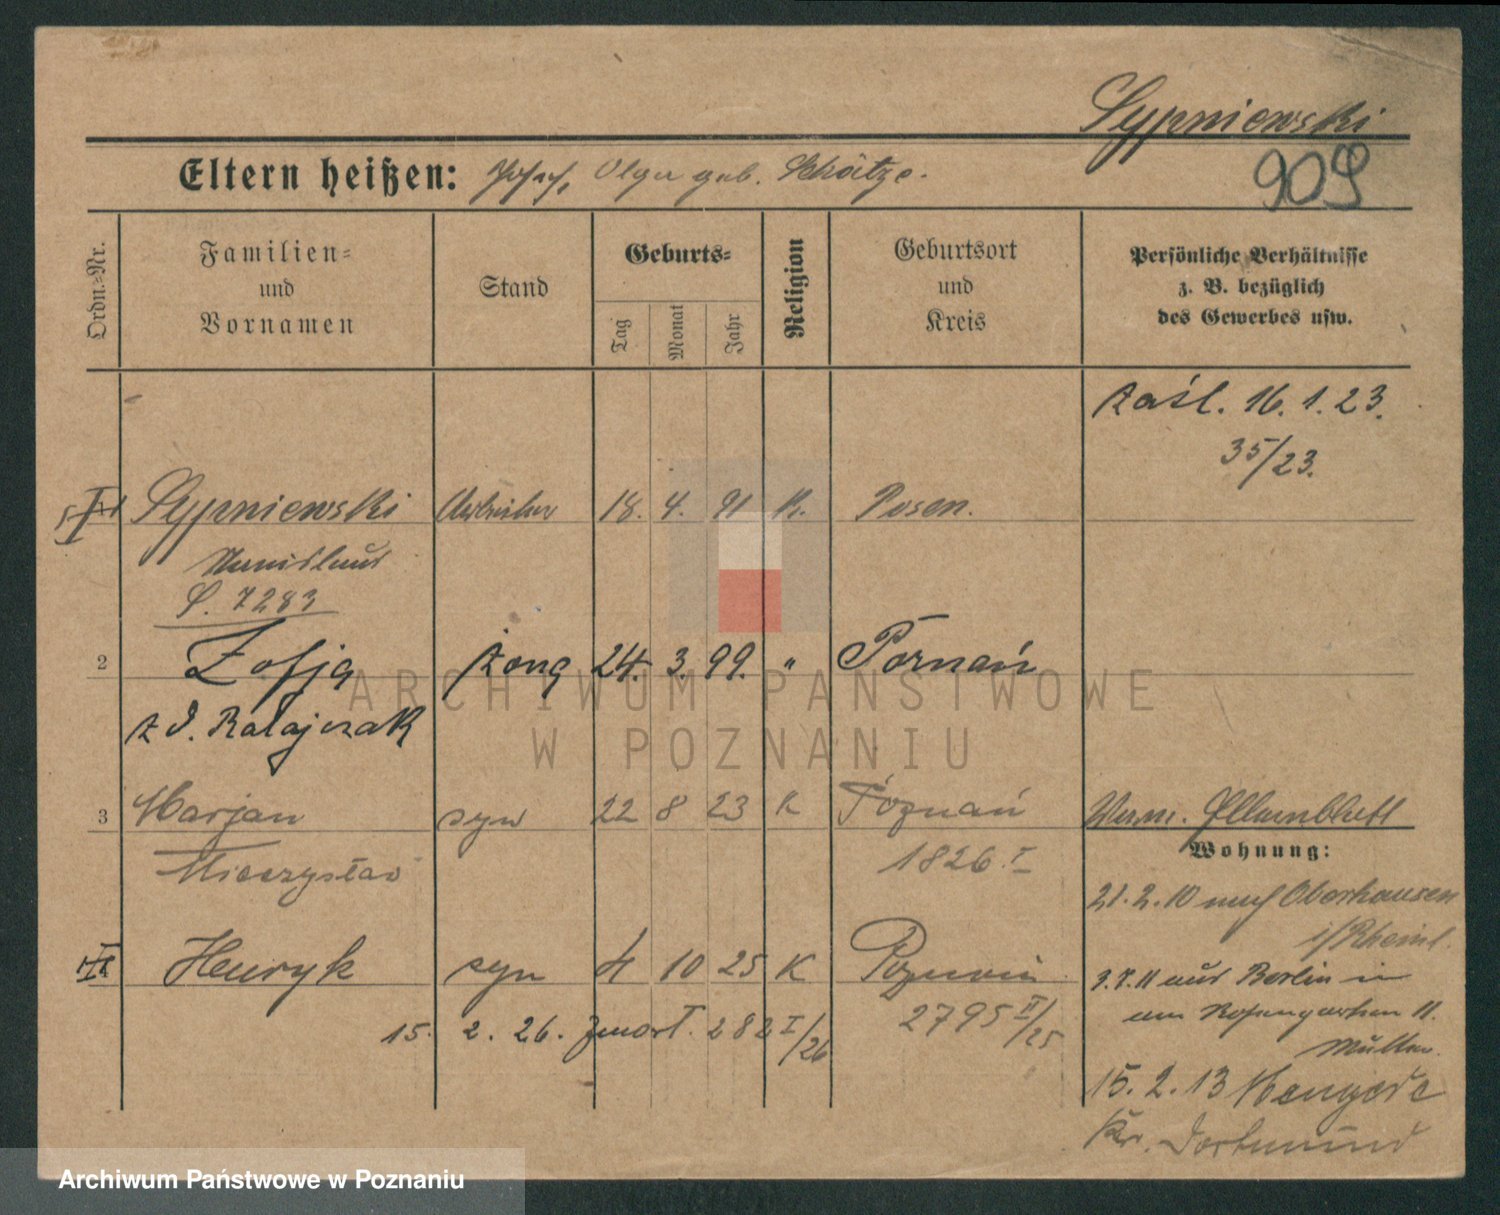 Sypniewski
909
Eltern heißen: Josef, Olga geb. Schätze.
Ordn.-Nr.
Familien-
und
Vornamen
Stand
Geburts-
Tag
Monat
Jahr
Religion
Geburtsort
und
Kreis
Persönliche Verhältnisse
z. B. bezüglich
des Gewerbes usw.
zaśl. 16. 1. 23.
35/23.
Sypniewski Arbeiter 18. 4. 91 K. Posen.
Stanislaus
S. 7283
2 Zofja żona 24. 3. 99. " Poznań
z d. Ratajczak
3 Marjan syn 22 8 23 K Poznań
Mieczysław
1826. I
Wohnung:
21. 2. 10 nach Oberhausen
i/Rheinl.
Henryk syn 4 10 25 K Poznań
2795 II/25
15. 2. 26. zmarł. 282 I/26
3. 7. 11 aus Berlin in
am Rosengarten 11.
Mutter.
15. 2. 13 Mengede
Kr. Dortmund
ARCHIWUM PAŃSTWOWE
W POZNANIU
Archiwum Państwowe w Poznaniu